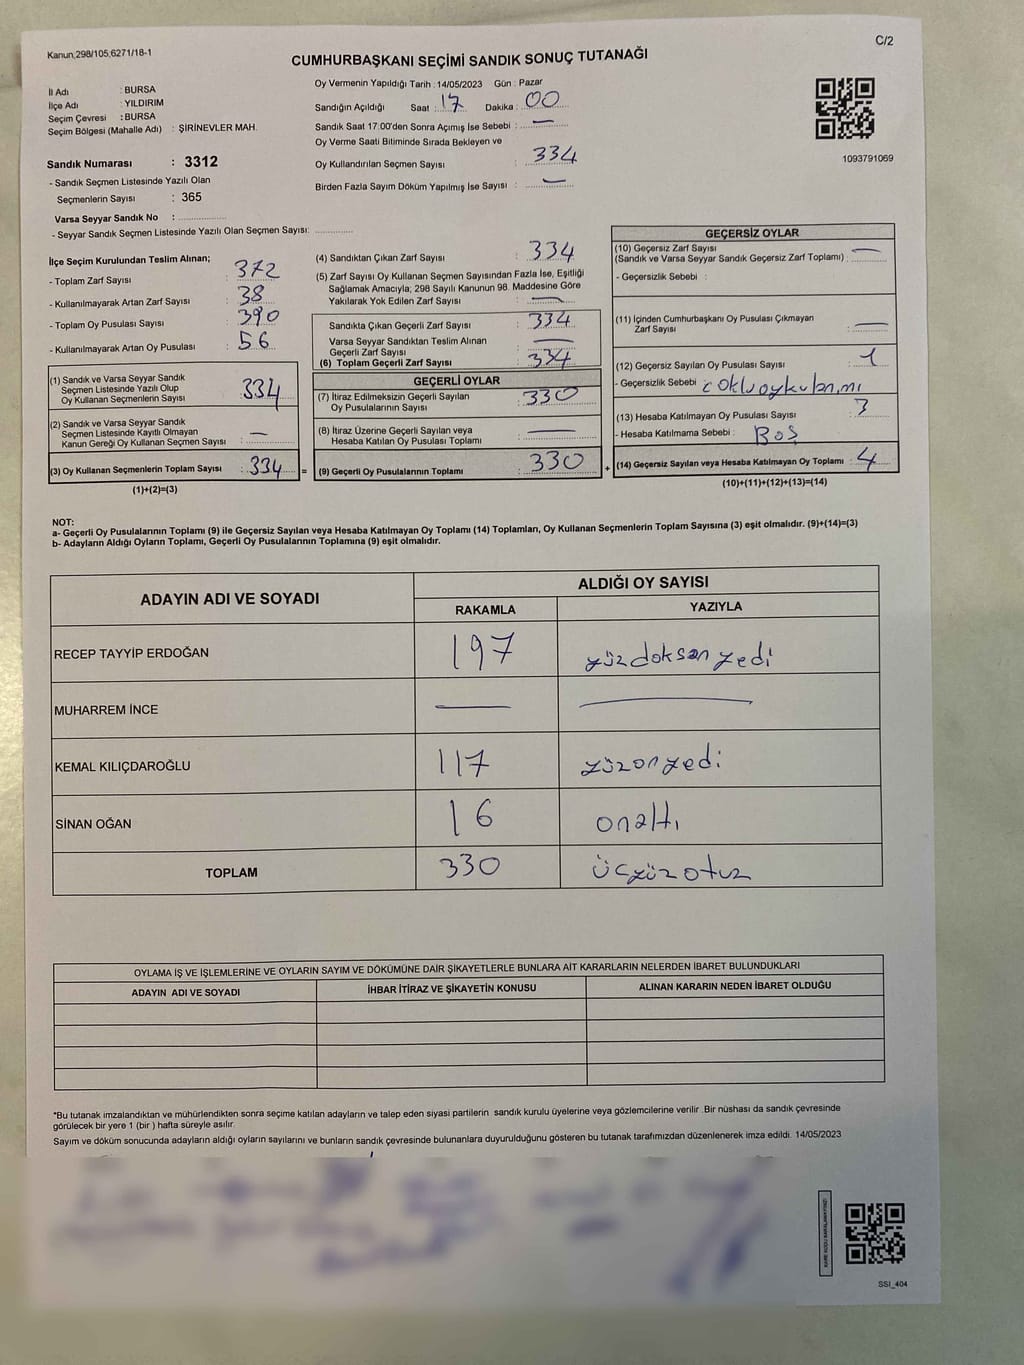 Kanun;298/105;6271/18-1
C/2
CUMHURBAŞKANI SEÇİMİ SANDIK SONUÇ TUTANAĞI
İl Adı : BURSA
İlçe Adı : YILDIRIM
Seçim Çevresi : BURSA
Seçim Bölgesi (Mahalle Adı) : ŞİRİNEVLER MAH.
Sandık Numarası : 3312
- Sandık Seçmen Listesinde Yazılı Olan
Seçmenlerin Sayısı : 365
Varsa Seyyar Sandık No :
- Seyyar Sandık Seçmen Listesinde Yazılı Olan Seçmen Sayısı:
Oy Vermenin Yapıldığı Tarih : 14/05/2023 Gün : Pazar
Sandığın Açıldığı Saat : 17 Dakika : 00
Sandık Saat 17:00'den Sonra Açımış İse Sebebi : —
Oy Verme Saati Bitiminde Sırada Bekleyen ve
Oy Kullandırılan Seçmen Sayısı : 334
Birden Fazla Sayım Döküm Yapılmış İse Sayısı : —
1093791069
İlçe Seçim Kurulundan Teslim Alınan;
- Toplam Zarf Sayısı : 372
- Kullanılmayarak Artan Zarf Sayısı : 38
- Toplam Oy Pusulası Sayısı : 390
- Kullanılmayarak Artan Oy Pusulası : 56
(1) Sandık ve Varsa Seyyar Sandık
Seçmen Listesinde Yazılı Olup
Oy Kullanan Seçmenlerin Sayısı : 334
(2) Sandık ve Varsa Seyyar Sandık
Seçmen Listesinde Kayıtlı Olmayan
Kanun Gereği Oy Kullanan Seçmen Sayısı : —
(3) Oy Kullanan Seçmenlerin Toplam Sayısı : 334 =
(1)+(2)=(3)
(4) Sandıktan Çıkan Zarf Sayısı : 334
(5) Zarf Sayısı Oy Kullanan Seçmen Sayısından Fazla İse, Eşitliği
Sağlamak Amacıyla; 298 Sayılı Kanunun 98. Maddesine Göre
Yakılarak Yok Edilen Zarf Sayısı : —
Sandıkta Çıkan Geçerli Zarf Sayısı : 334
Varsa Seyyar Sandıktan Teslim Alınan
Geçerli Zarf Sayısı : —
(6) Toplam Geçerli Zarf Sayısı : 334
GEÇERLİ OYLAR
(7) İtiraz Edilmeksizin Geçerli Sayılan
Oy Pusulalarının Sayısı : 330
(8) İtiraz Üzerine Geçerli Sayılan veya
Hesaba Katılan Oy Pusulası Toplamı : —
(9) Geçerli Oy Pusulalarının Toplamı : 330 +
GEÇERSİZ OYLAR
(10) Geçersiz Zarf Sayısı
(Sandık ve Varsa Seyyar Sandık Geçersiz Zarf Toplamı) : —
- Geçersizlik Sebebi :
(11) İçinden Cumhurbaşkanı Oy Pusulası Çıkmayan
Zarf Sayısı : —
(12) Geçersiz Sayılan Oy Pusulası Sayısı : 1
- Geçersizlik Sebebi : çoklu oy kullanımı
(13) Hesaba Katılmayan Oy Pusulası Sayısı : 3
- Hesaba Katılmama Sebebi : Boş
(14) Geçersiz Sayılan veya Hesaba Katılmayan Oy Toplamı : 4
(10)+(11)+(12)+(13)=(14)
NOT:
a- Geçerli Oy Pusulalarının Toplamı (9) ile Geçersiz Sayılan veya Hesaba Katılmayan Oy Toplamı (14) Toplamları, Oy Kullanan Seçmenlerin Toplam Sayısına (3) eşit olmalıdır. (9)+(14)=(3)
b- Adayların Aldığı Oyların Toplamı, Geçerli Oy Pusulalarının Toplamına (9) eşit olmalıdır.
ADAYIN ADI VE SOYADI
ALDIĞI OY SAYISI
RAKAMLA YAZIYLA
RECEP TAYYİP ERDOĞAN 197 yüzdoksan yedi
MUHARREM İNCE — —
KEMAL KILIÇDAROĞLU 117 yüzonyedi
SİNAN OĞAN 16 onaltı
TOPLAM 330 üçyüzotuz
OYLAMA İŞ VE İŞLEMLERİNE VE OYLARIN SAYIM VE DÖKÜMÜNE DAİR ŞİKAYETLERLE BUNLARA AİT KARARLARIN NELERDEN İBARET BULUNDUKLARI
ADAYIN ADI VE SOYADI İHBAR İTİRAZ VE ŞİKAYETİN KONUSU ALINAN KARARIN NEDEN İBARET OLDUĞU
*Bu tutanak imzalandıktan ve mühürlendikten sonra seçime katılan adayların ve talep eden siyasi partilerin sandık kurulu üyelerine veya gözlemcilerine verilir .Bir nüshası da sandık çevresinde
görülecek bir yere 1 (bir ) hafta süreyle asılır.
Sayım ve döküm sonucunda adayların aldığı oyların sayılarını ve bunların sandık çevresinde bulunanlara duyurulduğunu gösteren bu tutanak tarafımızdan düzenlenerek imza edildi. 14/05/2023
SSI_404